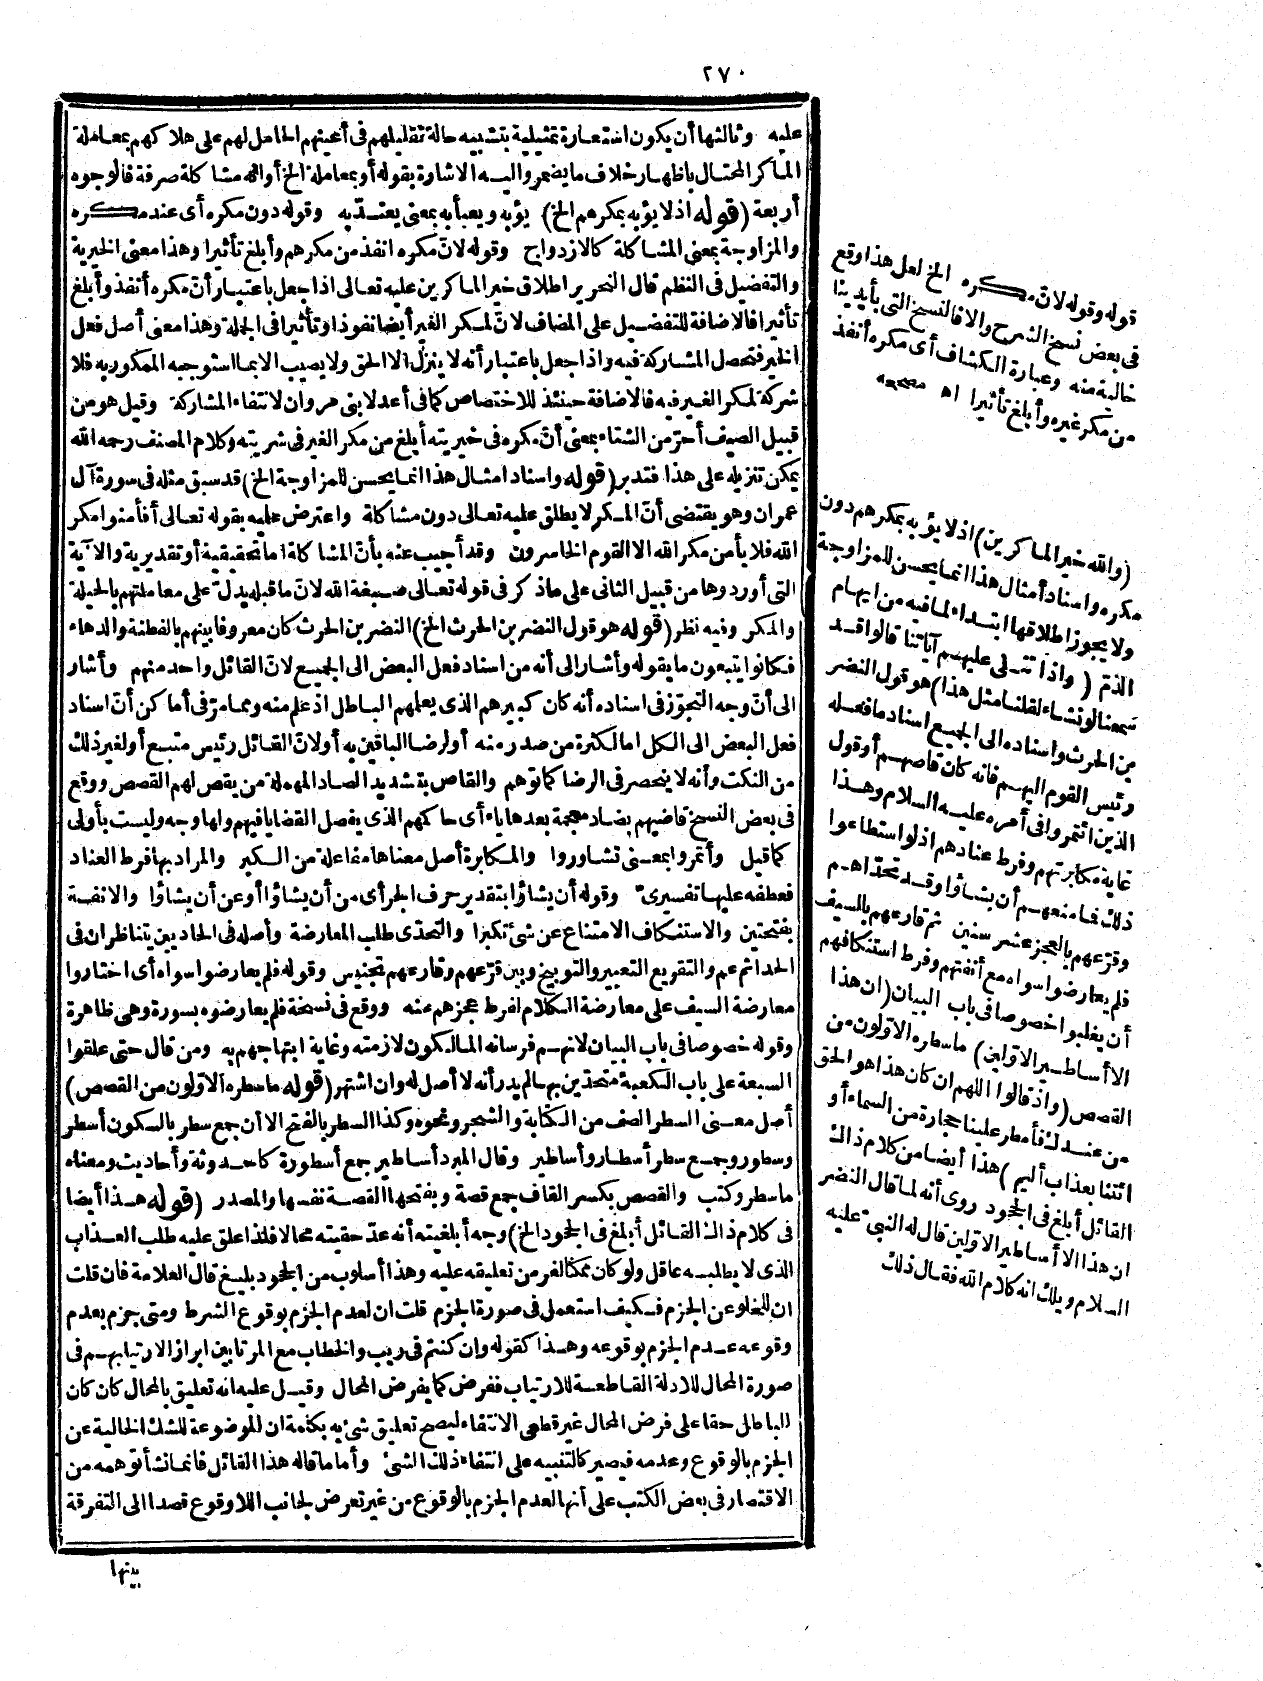 ٢٧٠
عليه وثالثها أن يكون استعارة تمثيلية بتشبيه حالة تقليلهم فى أعينهم الحامل لهم على هلاكهم بمعاملة
الماكر المحتال باظهار خلاف ما يضمر واليه الاشارة بقوله أو بمعاملة الخ أو انه مشاكلة صرفة فالوجوه
أربعة (قوله اذ لا يؤبه بمكرهم الخ) يؤبه ويعبأ به بمعنى يعتدّ به وقوله دون مكره أى عند مكره
والمزاوجة بمعنى المشاكلة كالازدواج وقوله لانّ مكره انفذ من مكرهم وأبلغ تأثيرا وهذا معنى الخيرية
والتفضيل فى النظم قال النحرير اطلاق خير الماكرين عليه تعالى اذا جعل باعتبار أنّ مكره أنفذ وأبلغ
تأثيرا فالاضافة للتفضيل على المضاف لانّ لمكر الغير أيضا نفوذا وتأثيرا فى الجملة وهذا معنى أصل فعل
الخير فتحصل المشاركة فيه واذا جعل باعتبار أنه لا ينزل الا الحق ولا يصيب الا بما استوجبه الممكور به فلا
شركة لمكر الغير فيه فالاضافة حينئذ للاختصاص كما فى أعدلا بنى مروان لانتفاء المشاركة وقيل هو من
قبيل الصيف أحرّ من الشتاء بمعنى أنّ مكره فى خيريته أبلغ من مكر الغير فى شريته وكلام المصنف رحمه الله
يمكن تنزيله على هذا فتدبر (قوله واسناد امثال هذا انما يحسن للمزاوجة الخ) قد سبق مثله فى سورة آل
عمران وهو يقتضى أنّ المكر لا يطلق عليه تعالى دون مشاكلة واعترض عليه بقوله تعالى أفأمنوا مكر
الله فلا يأمن مكر الله الا القوم الخاسرون وقد أجيب عنه بأنّ المشاكلة اما تحقيقية أو تقديرية والآية
التى أوردوها من قبيل الثانى على ما ذكر فى قوله تعالى صبغة الله لانّ ما قبله يدلّ على معاملتهم بالحيلة
والمكر وفيه نظر (قوله هو قول النضر بن الحرث الخ) النضر بن الحرث كان معروفا بينهم بالفطنة والدهاء
فكانوا يتبعون ما يقوله وأشار الى أنه من اسناد فعل البعض الى الجميع لانّ القائل واحد منهم وأشار
الى أنّ وجه التجوّز فى اسناده أنه كان كبيرهم الذى يعلمهم الباطل اذ علم منه ومما مرّ فى أماكن أنّ اسناد
فعل البعض الى الكل اما لكثرة من صدر منه أو لرضا الباقين به أو لانّ القائل رئيس متبع أو لغير ذلك
من النكت وأنه لا ينحصر فى الرضا كما توهم والقاص بتشديد الصاد المهملة من يقص لهم القصص ووقع
فى بعض النسخ قاضيهم بضاد معجمة بعدها ياء أى حاكمهم الذى يفصل القضايا فيهم ولها وجه وليست بأولى
كما قيل وأتمروا بمعنى تشاوروا والمكابرة أصل معناها مفاعلة من الكبر والمراد بها فرط العناد
فعطفه عليها تفسيرىّ وقوله أن يشاؤا بتقدير حرف الجر أى من أن يشاؤا أو عن أن يشاؤا والانفة
بفتحتين والاستنكاف الامتناع عن شئ تكبرا والتحدّى طلب المعارضة وأصله فى الحاديين يتناظران فى
الحداء ثم عم والتقريع التعيير والتوبيخ وبين قرّعهم وقارعهم تجنيس وقوله فلم يعارضوا سواه أى اختاروا
معارضة السيف على معارضة الكلام لفرط عجزهم عنه ووقع فى نسخة فلم يعارضوه بسورة وهى ظاهرة
وقوله خصوصا فى باب البيان لانهم فرسانه المالكون لازمته وغاية ابتهاجهم به ومن قال حتى علقوا
السبعة على باب الكعبة متحدّين بها لم يدر أنه لا أصل له وان اشتهر (قوله ما سطره الاوّلون من القصص)
أصل معنى السطر الصف من الكتابة والشجر ونحوه وكذا السطر بالفتح الا أن جمع سطر بالسكون أسطر
وسطور وجمع سطر أسطار وأساطير وقال المبرد أساطير جمع أسطورة كاحدوثة وأحاديث ومعناه
ما سطر وكتب والقصص بكسر القاف جمع قصة وبفتحها القصة نفسها والمصدر (قوله هذا أيضا
فى كلام ذلك القائل أبلغ فى الجحود الخ) وجه أبلغيته أنه عدّ حقيته محالا فلذا علق عليه طلب العذاب
الذى لا يطلبه عاقل ولو كان ممكنا لفر من تعليقه عليه وهذا أسلوب من الجحود بليغ قال العلامة فان قلت
ان للخلو عن الجزم فكيف استعمل فى صورة الجزم قلت ان لعدم الجزم بوقوع الشرط ومتى جزم بعدم
وقوعه عدم الجزم بوقوعه وهذا كقوله وان كنتم فى ريب والخطاب مع المرتابين ابراز الارتيابهم فى
صورة المحال للادلة القاطعة للارتياب ففرض كما يفرض المحال وقيل عليه انه تعليق بالمحال كان كان
الباطل حقا على فرض المحال غير قطعى الانتفاء ليصح تعليق شئ به بكلمة ان الموضوعة للشك الخالية عن
الجزم بالوقوع وعدمه فيصير كالتنبيه على انتفاء ذلك الشئ وأما ما قاله هذا القائل فانما نشأ توهمه من
الاقتصار فى بعض الكتب على أنها لعدم الجزم بالوقوع من غير تعرض لجانب اللاوقوع قصدا الى التفرقة
بينها
قوله وقوله لانّ مكره الخ لعل هذا وقع
فى بعض نسخ الشرح والا فالنسخ التى بأيدينا
خالية منه وعبارة الكشاف أى مكره أنفذ
من مكر غيره وأبلغ تأثيرا اه مصححه
(والله خير الماكرين) اذ لا يؤبه بمكرهم دون
مكره واسناد أمثال هذا انما يحسن للمزاوجة
ولا يجوز اطلاقها ابتداء لما فيه من ايهام
الذمّ (واذا تتلى عليهم آياتنا قالوا قد
سمعنا لو نشاء لقلنا مثل هذا) هو قول النضر
بن الحرث واسناده الى الجميع اسناد ما فعله
رئيس القوم اليهم فانه كان قاصهم أو قول
الذين ائتمروا فى أمره عليه السلام وهذا
غاية مكابرتهم وفرط عنادهم اذ لو استطاعوا
ذلك فما منعهم أن يشاؤا وقد تحدّاهم
وقرّعهم بالعجز عشر سنين ثم قارعهم بالسيف
فلم يعارضوا سواه مع أنفتهم وفرط استنكافهم
أن يغلبوا خصوصا فى باب البيان (ان هذا
الا أساطير الاوّلين) ما سطره الاوّلون من
القصص (واذ قالوا اللهم ان كان هذا هو الحق
من عندك فأمطر علينا حجارة من السماء أو
ائتنا بعذاب أليم) هذا أيضا من كلام ذلك
القائل أبلغ فى الجحود روى أنه لما قال النضر
ان هذا الا أساطير الاوّلين قال له النبىّ عليه
السلام ويلك انه كلام الله فقال ذلك